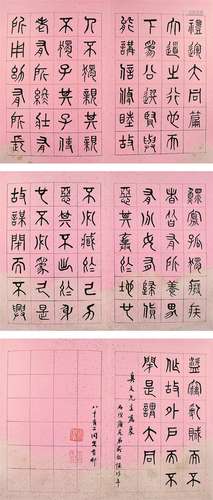 禮運大同篇
大道之行也天
下為公選賢與
能講信修睦故
人不獨親其親
不獨子其子使
老有所終壯有
所用幼有所長
鰥寡孤獨廢疾
者皆有所養男
有分女有歸貨
惡其棄於地也
不必藏於己力
惡其不出於身
也不必為己是
故謀閉而不興
盜竊亂賊而不
作故外戶而不
閉是謂大同
文先生
八十有二